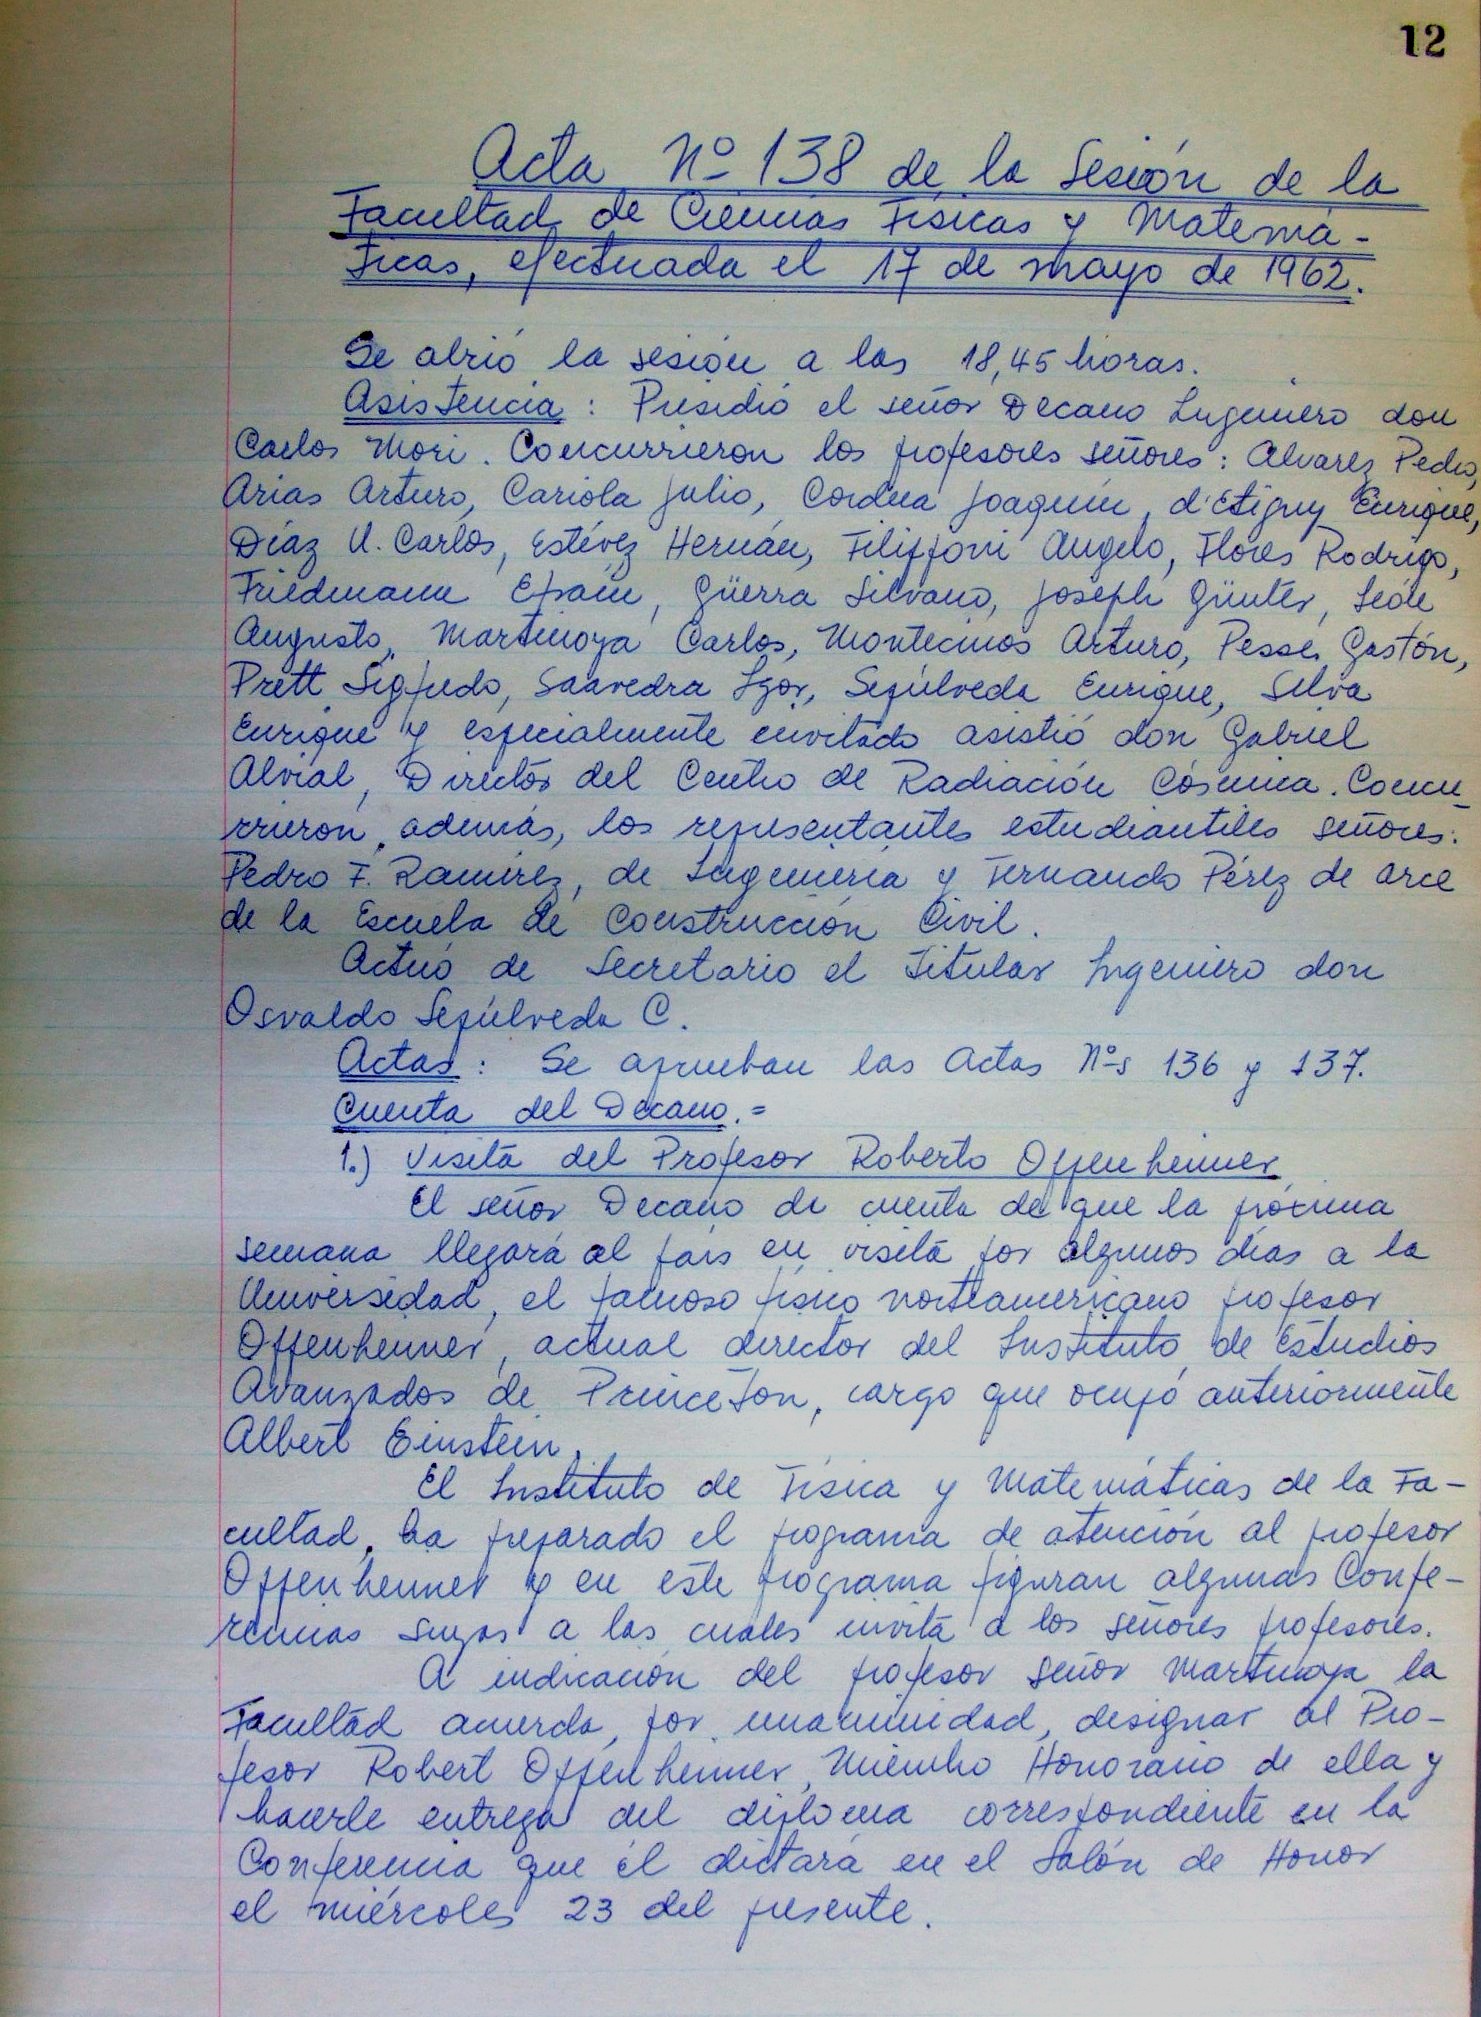 12
Acta Nº 138 de la Sesión de la
Facultad de Ciencias Físicas y Matemá-
ticas, efectuada el 17 de mayo de 1962.
Se abrió la sesión a las 18,45 horas.
Asistencia: Presidió el señor Decano Ingeniero don
Carlos Mori. Concurrieron los profesores señores: Alvarez Pedro,
Arias Arturo, Cariola Julio, Cordua Joaquín, d'Etigny Enrique,
Díaz U. Carlos, Estévez Hernán, Filippni Angelo, Flores Rodrigo,
Friedmann Efraín, Güerra Silvano, Joseph Günter, León
Augusto, Martinoya Carlos, Montecinos Arturo, Pesse Gastón,
Prett Sigfredo, Saavedra Igor, Sepúlveda Enrique, Silva
Enrique y especialmente invitado asistió don Gabriel
Alvial, Director del Centro de Radiación Cósmica. Concu-
rrieron, además, los representantes estudiantiles señores:
Pedro F. Ramírez, de Ingeniería y Fernando Pérez de Arce
de la Escuela de Construcción Civil.
Actuó de Secretario el Titular Ingeniero don
Osvaldo Sepúlveda C.
Actas: Se aprueban las Actas Nºs 136 y 137.
Cuenta del Decano.=
1.) Visita del Profesor Roberto Oppenheimer
El señor Decano da cuenta de que la próxima
semana llegará al país en visita por algunos días a la
Universidad, el famoso físico norteamericano profesor
Oppenheimer, actual director del Instituto de Estudios
Avanzados de Princeton, cargo que ocupó anteriormente
Albert Einstein.
El Instituto de Física y Matemáticas de la Fa-
cultad, ha preparado el programa de atención al profesor
Oppenheimer y en este programa figuran algunas Confe-
rencias suyas a las cuales invita a los señores profesores.
A indicación del profesor señor Martinoya la
Facultad acuerda, por unanimidad, designar al Pro-
fesor Robert Oppenheimer, Miembro Honorario de ella y
hacerle entrega del diploma correspondiente en la
Conferencia que él dictará en el Salón de Honor
el miércoles 23 del presente.